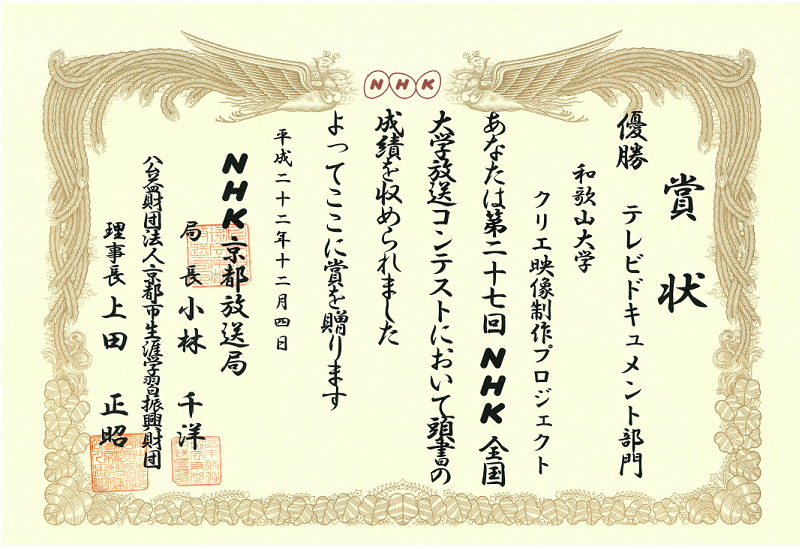 NHK
賞状
優勝 テレビドキュメント部門
和歌山大学
クリエ映像制作プロジェクト
あなたは第二十七回NHK全国
大学放送コンテストにおいて頭書の
成績を収められました
よってここに賞を贈ります
平成二十二年十二月四日
NHK京都放送局
局長 小林 千洋
公益財団法人京都市生涯学習振興財団
理事長 上田 正昭